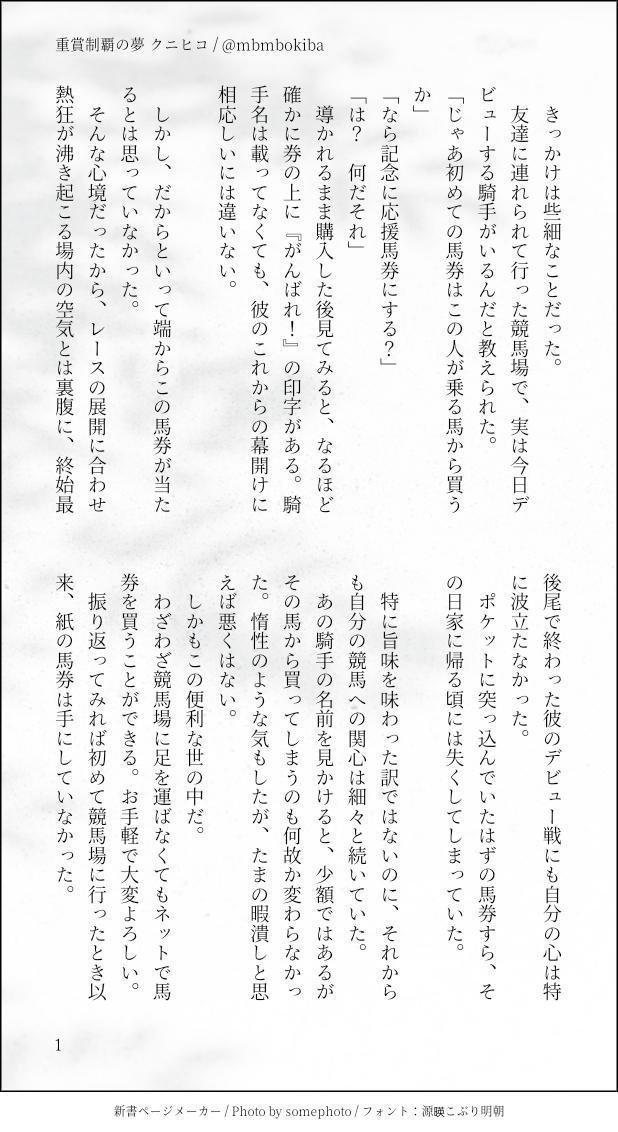 重賞制覇の夢 クニヒコ / @mbmbokiba
きっかけは些細なことだった。
友達に連れられて行った競馬場で、実は今日デ
ビューする騎手がいるんだと教えられた。
「じゃあ初めての馬券はこの人が乗る馬から買う
か」
「なら記念に応援馬券にする？」
「は？　何だそれ」
導かれるまま購入した後見てみると、なるほど
確かに券の上に『がんばれ！』の印字がある。騎
手名は載ってなくても、彼のこれからの幕開けに
相応しいには違いない。
しかし、だからといって端からこの馬券が当た
るとは思っていなかった。
そんな心境だったから、レースの展開に合わせ
熱狂が沸き起こる場内の空気とは裏腹に、終始最
後尾で終わった彼のデビュー戦にも自分の心は特
に波立たなかった。
ポケットに突っ込んでいたはずの馬券すら、そ
の日家に帰る頃には失くしてしまっていた。
特に旨味を味わった訳ではないのに、それから
も自分の競馬への関心は細々と続いていた。
あの騎手の名前を見かけると、少額ではあるが
その馬から買ってしまうのも何故か変わらなかっ
た。惰性のような気もしたが、たまの暇潰しと思
えば悪くはない。
しかもこの便利な世の中だ。
わざわざ競馬場に足を運ばなくてもネットで馬
券を買うことができる。お手軽で大変よろしい。
振り返ってみれば初めて競馬場に行ったとき以
来、紙の馬券は手にしていなかった。
1
新書ページメーカー / Photo by somephoto / フォント：源暎こぶり明朝